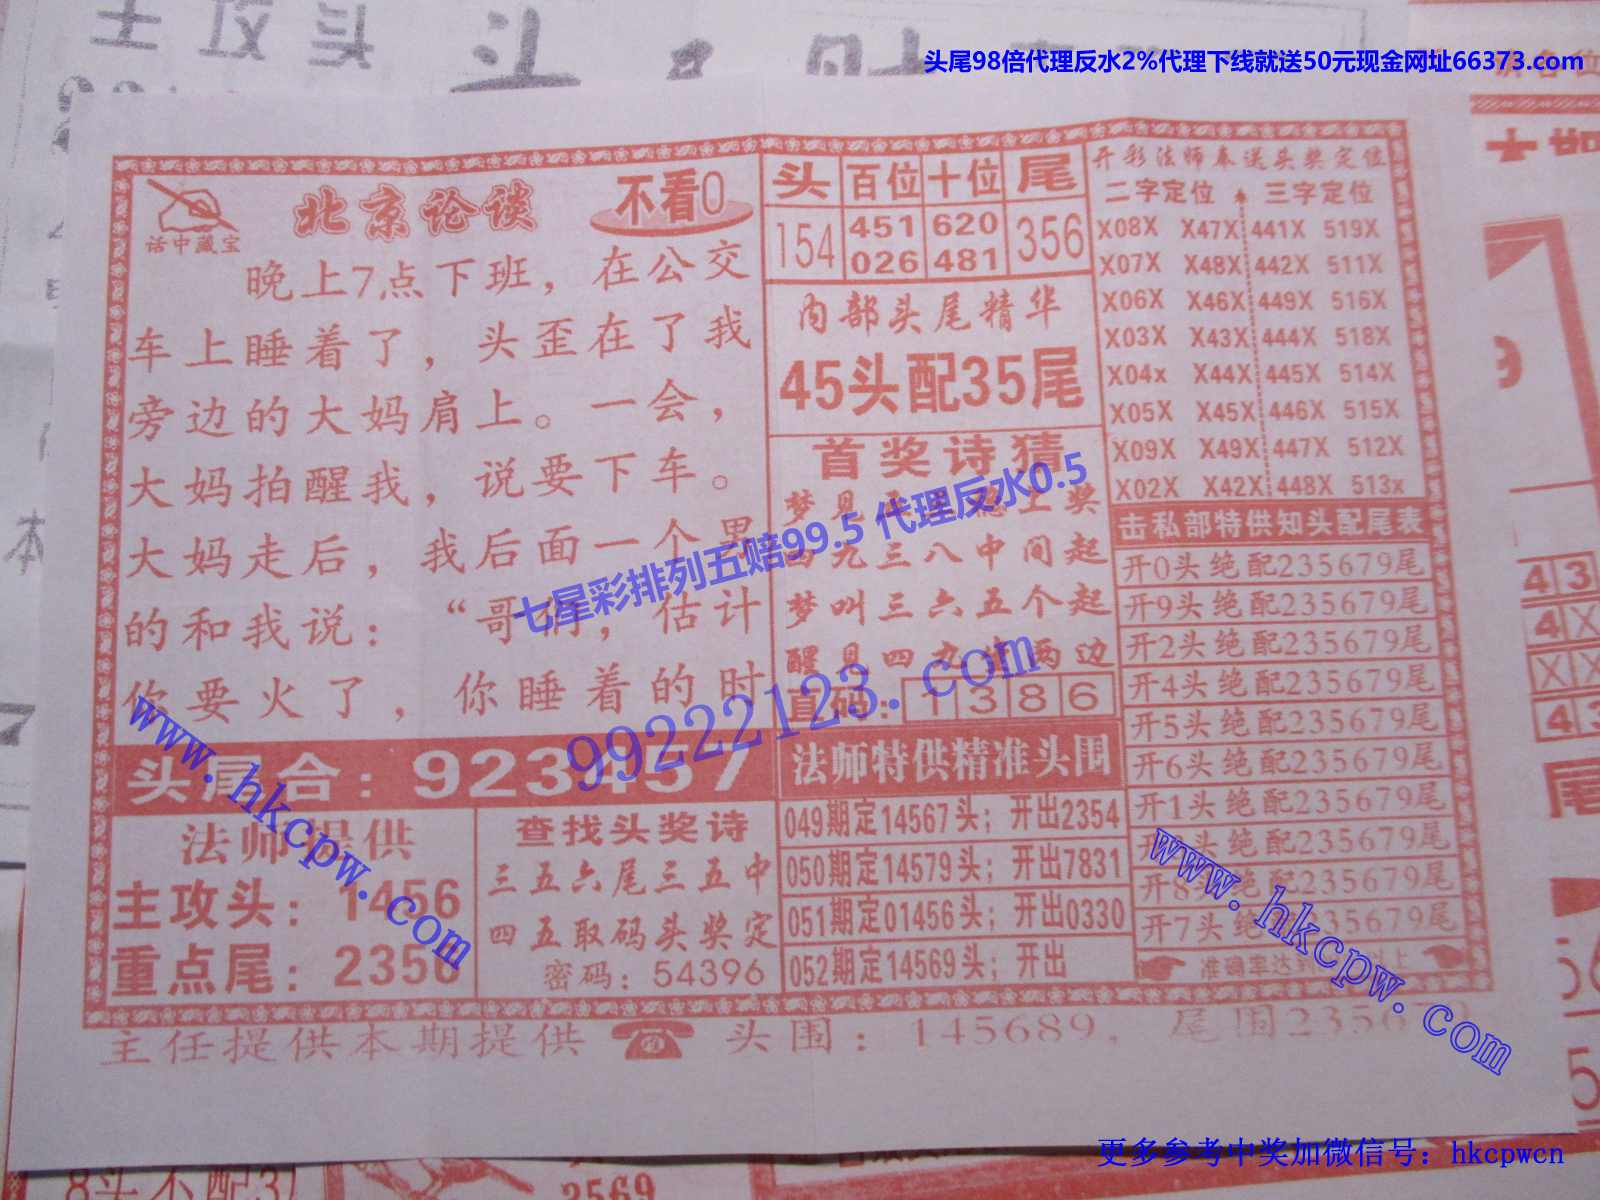 主攻头
头尾98倍代理反水2%代理下线就送50元现金网址66373.com
话中藏宝
北京论谈
不看0
晚上7点下班，在公交
车上睡着了，头歪在了我
旁边的大妈肩上。一会，
大妈拍醒我，说要下车。
大妈走后，我后面一个男
的和我说：“哥俩，估计
你要火了，你睡着的时
头尾合：923457
法师提供
主攻头：1456
重点尾：2356
查找头奖诗
三五六尾三五中
四五取码头奖定
密码：54396
头 百位 十位 尾
154 451 620 356
026 481
内部头尾精华
45头配35尾
首奖诗猜
梦见 上奖
九三八中间起
梦叫三六五个起
醒见四九 两边
直码：1386
法师特供精准头围
049期定14567头；开出2354
050期定14579头；开出7831
051期定01456头；开出0330
052期定14569头；开出
开彩法师奉送头奖定位
二字定位 三字定位
X08X X47X 441X 519X
X07X X48X 442X 511X
X06X X46X 449X 516X
X03X X43X 444X 518X
X04x X44X 445X 514X
X05X X45X 446X 515X
X09X X49X 447X 512X
X02X X42X 448X 513x
击私部特供知头配尾表
开0头绝配235679尾
开9头绝配235679尾
开2头绝配235679尾
开4头绝配235679尾
开5头绝配235679尾
开6头绝配235679尾
开1头绝配235679尾
开 头绝配235679尾
开8头绝配235679尾
开7头绝配235679尾
准确率达到 上
主任提供本期提供 头围：145689，尾围2356
七星彩排列五赔99.5 代理反水0.5
99222123.com
www.hkcpw.com
www.hkcpw.com
更多参考中奖加微信号：hkcpwcn
8头不配3
2569
本
7
各位
9
43
4X
XX
43
尾
56
5